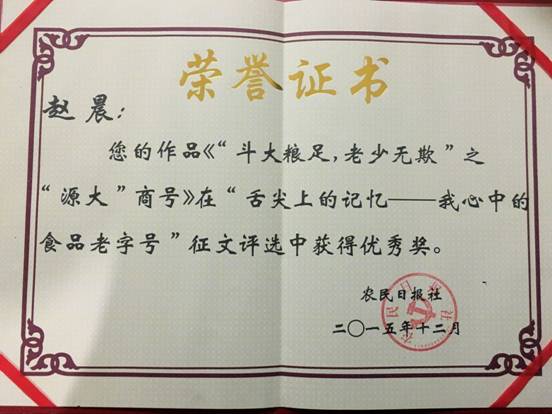 荣誉证书
赵晨：
您的作品《“斗大粮足，老少无欺”之
“源大”商号》在“舌尖上的记忆——我心中的
食品老字号”征文评选中获得优秀奖。
农民日报社
二〇一五年十二月
农民日报社